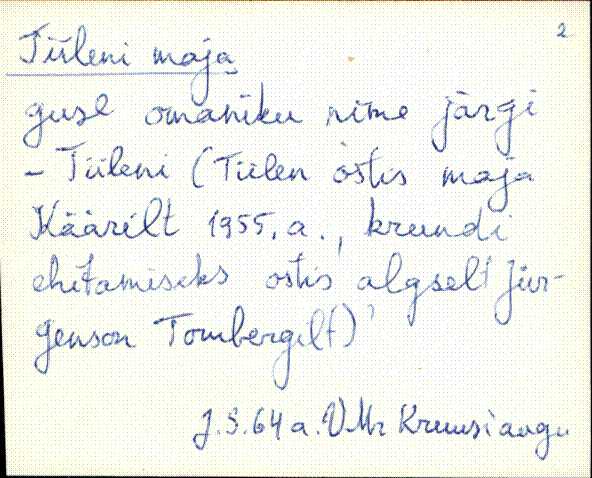 2
Tiileni maja
guse omaniku nime järgi
- Tiileni (Tiilen ostis maja
Käärilt 1955. a., krundi
ehitamiseks ostis algselt Jür-
genson Tombergilt)
J. S. 64 a. V.Mr Kruusiaugu